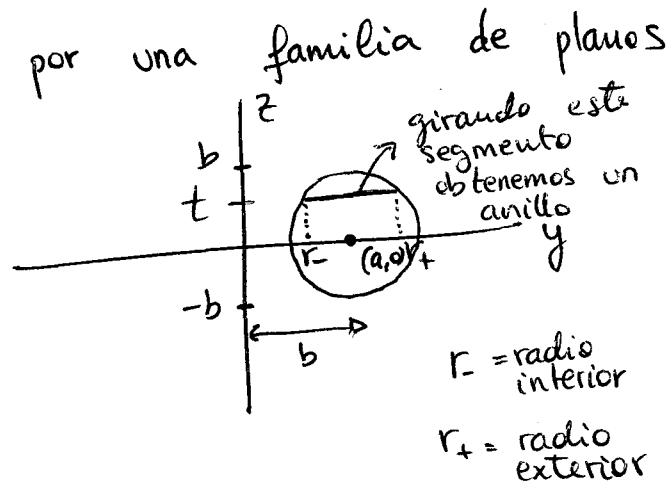 por una familia de planos
z
girando este
segmento
obtenemos un
anillo
b
t
r- (a,0) r+
y
-b
b
r- = radio
interior
r+ = radio
exterior